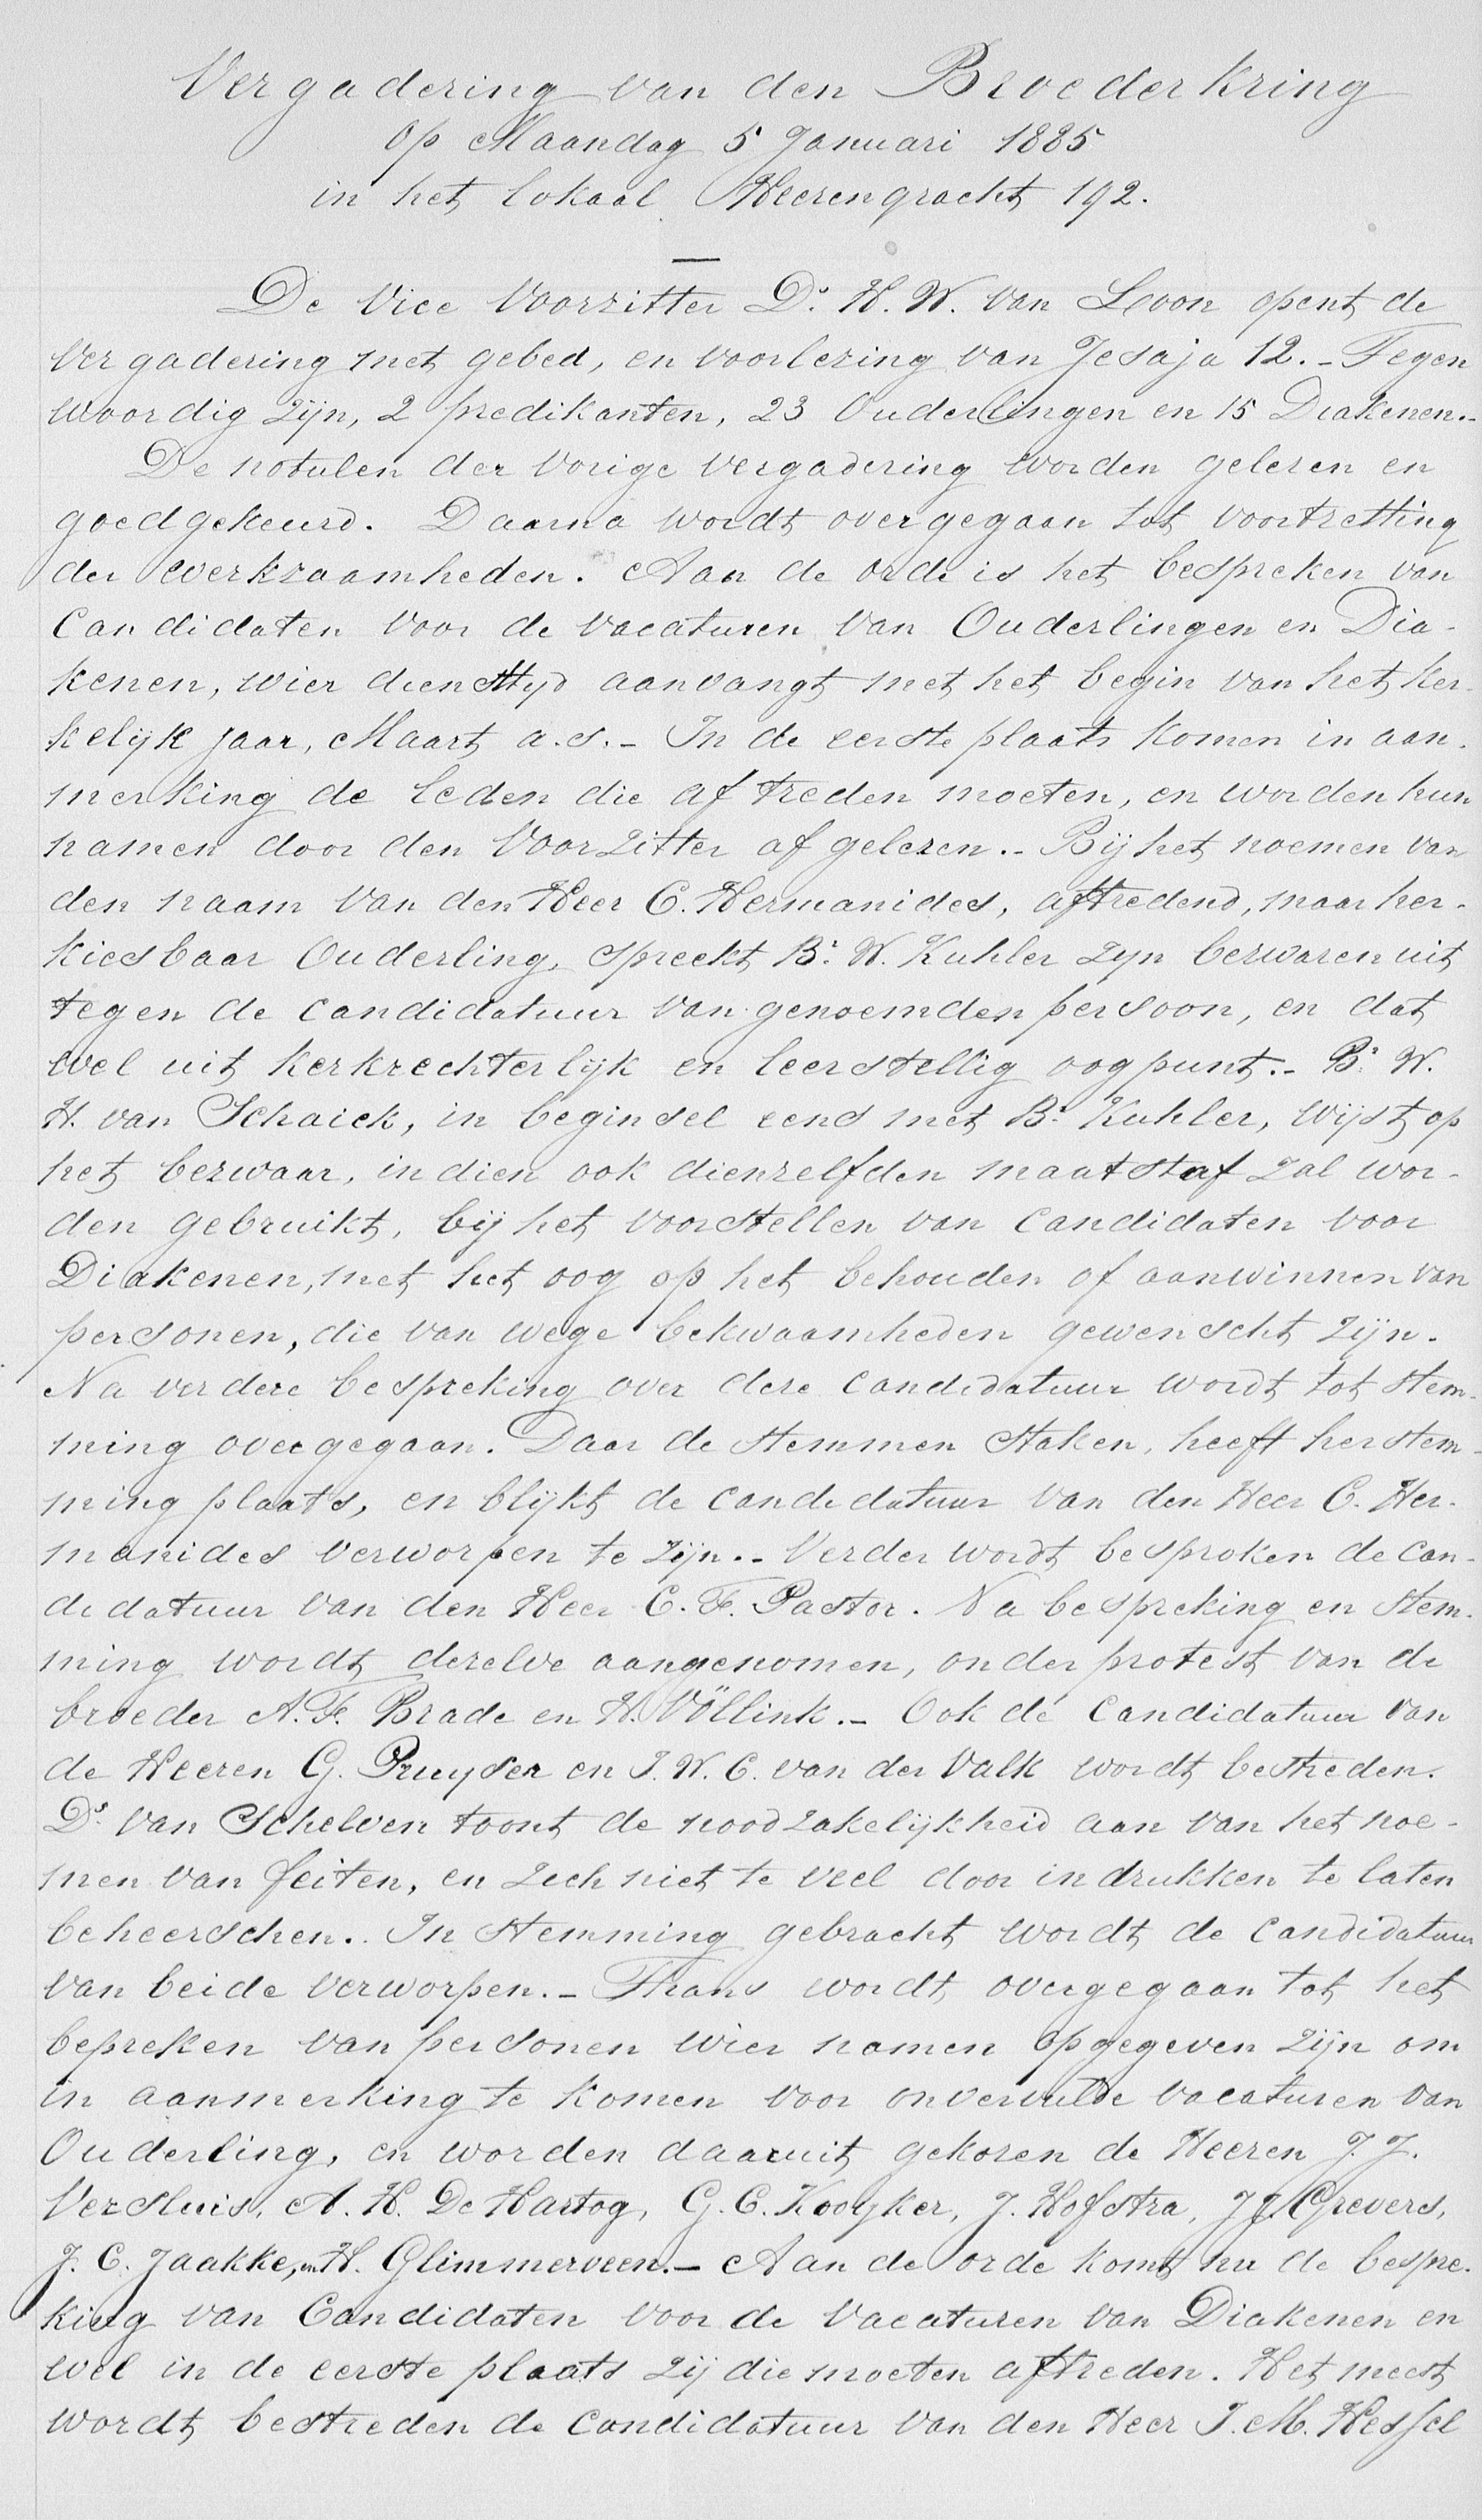 Vergadering van den Broederkring
op Maandag 5 Januari 1885
in het lokaal Heerengracht 192.
De Vice Voorzitter Ds. H. W. van Loon opent de
Vergadering met gebed, en voorlezing van Jesaja 12. - Tegen
woordig zijn, 2 predikanten, 23 Ouderlingen en 15 Diakenen. -
De notulen der vorige vergadering worden gelezen en
goedgekeurd. Daarna wordt overgegaan tot voortzetting
der werkzaamheden. Aan de orde is het bespreken van
Candidaten voor de vacaturen van Ouderlingen en Dia-
kenen, wier diensttijd aanvangt met het begin van het ker-
kelijk jaar, Maart a.s. - In de eerste plaats komen in aan-
merking de leden die af treden moeten, en worden hun
namen door den Voorzitter af gelezen. - Bij het noemen van
den naam van den Heer C. Hermanides, aftredend, maar her-
kiesbaar Ouderling, spreekt Br. W. Kuhler zyn bezwaren uit
tegen de candidatuur van genoemden persoon, en dat
wel uit kerkrechterlijk en leerstellig oogpunt. - Br. W.
H. van Schaick, in beginsel eens met Br. Kuhler, wijst op
het bezwaar, indien ook dienzelfden maatstaf zal wor-
den gebruikt, bij het voorstellen van candidaten voor
Diakenen, met het oog op het behouden of aanwinnen van
personen, die van wege bekwaamheden gewenscht zijn.
Na verdere bespreking over deze candidatuur wordt tot stem-
ming overgegaan. Daar de stemmen staken, heeft herstem-
ming plaats, en blijkt de candidatuur van den Heer C. Her-
manides verworpen te zijn. - Verder wordt besproken de can-
didatuur van den Heer C. F. Pastor. Na bespreking en stem-
ming wordt dezelve aangenomen, onder protest van de
broeder A. F. Brade en H. Völlink. - Ook de candidatuur van
de Heeren G. Pruyser en J. W. C. van der Valk wordt bestreden.
Ds. van Schelven toont de noodzakelijkheid aan van het noe-
men van feiten, en zich niet te veel door indrukken te laten
beheerschen. In stemming gebracht wordt de candidatuur
van beide verworpen. - Thans wordt overgegaan tot het
bepreken van personen wier namen opgegeven zijn om
in aanmerking te komen voor onvervulde vacaturen van
Ouderling, en worden daaruit gekozen de Heeren J. J.
Versluis, A. H. De Hartog, G. C. Kooyker, J. Hofstra, J. J. Grevers,
J. C. Jaakke, en H. Glimmerveen. - Aan de orde komt nu de bespre-
king van Candidaten voor de vacaturen van Diakenen en
wel in de eerste plaats zij die moeten aftreden. Het meest
wordt bestreden de candidatuur van den Heer J. M. Hessel